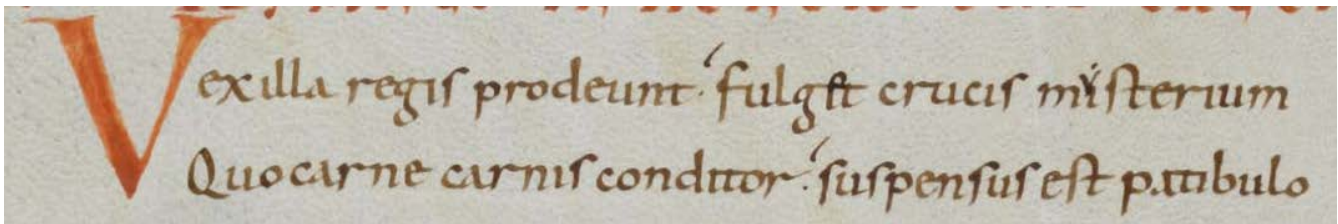 Vexilla regis prodeunt. fulget crucis mẏsterium
Quo carne carnis conditor. suspensus est patibulo